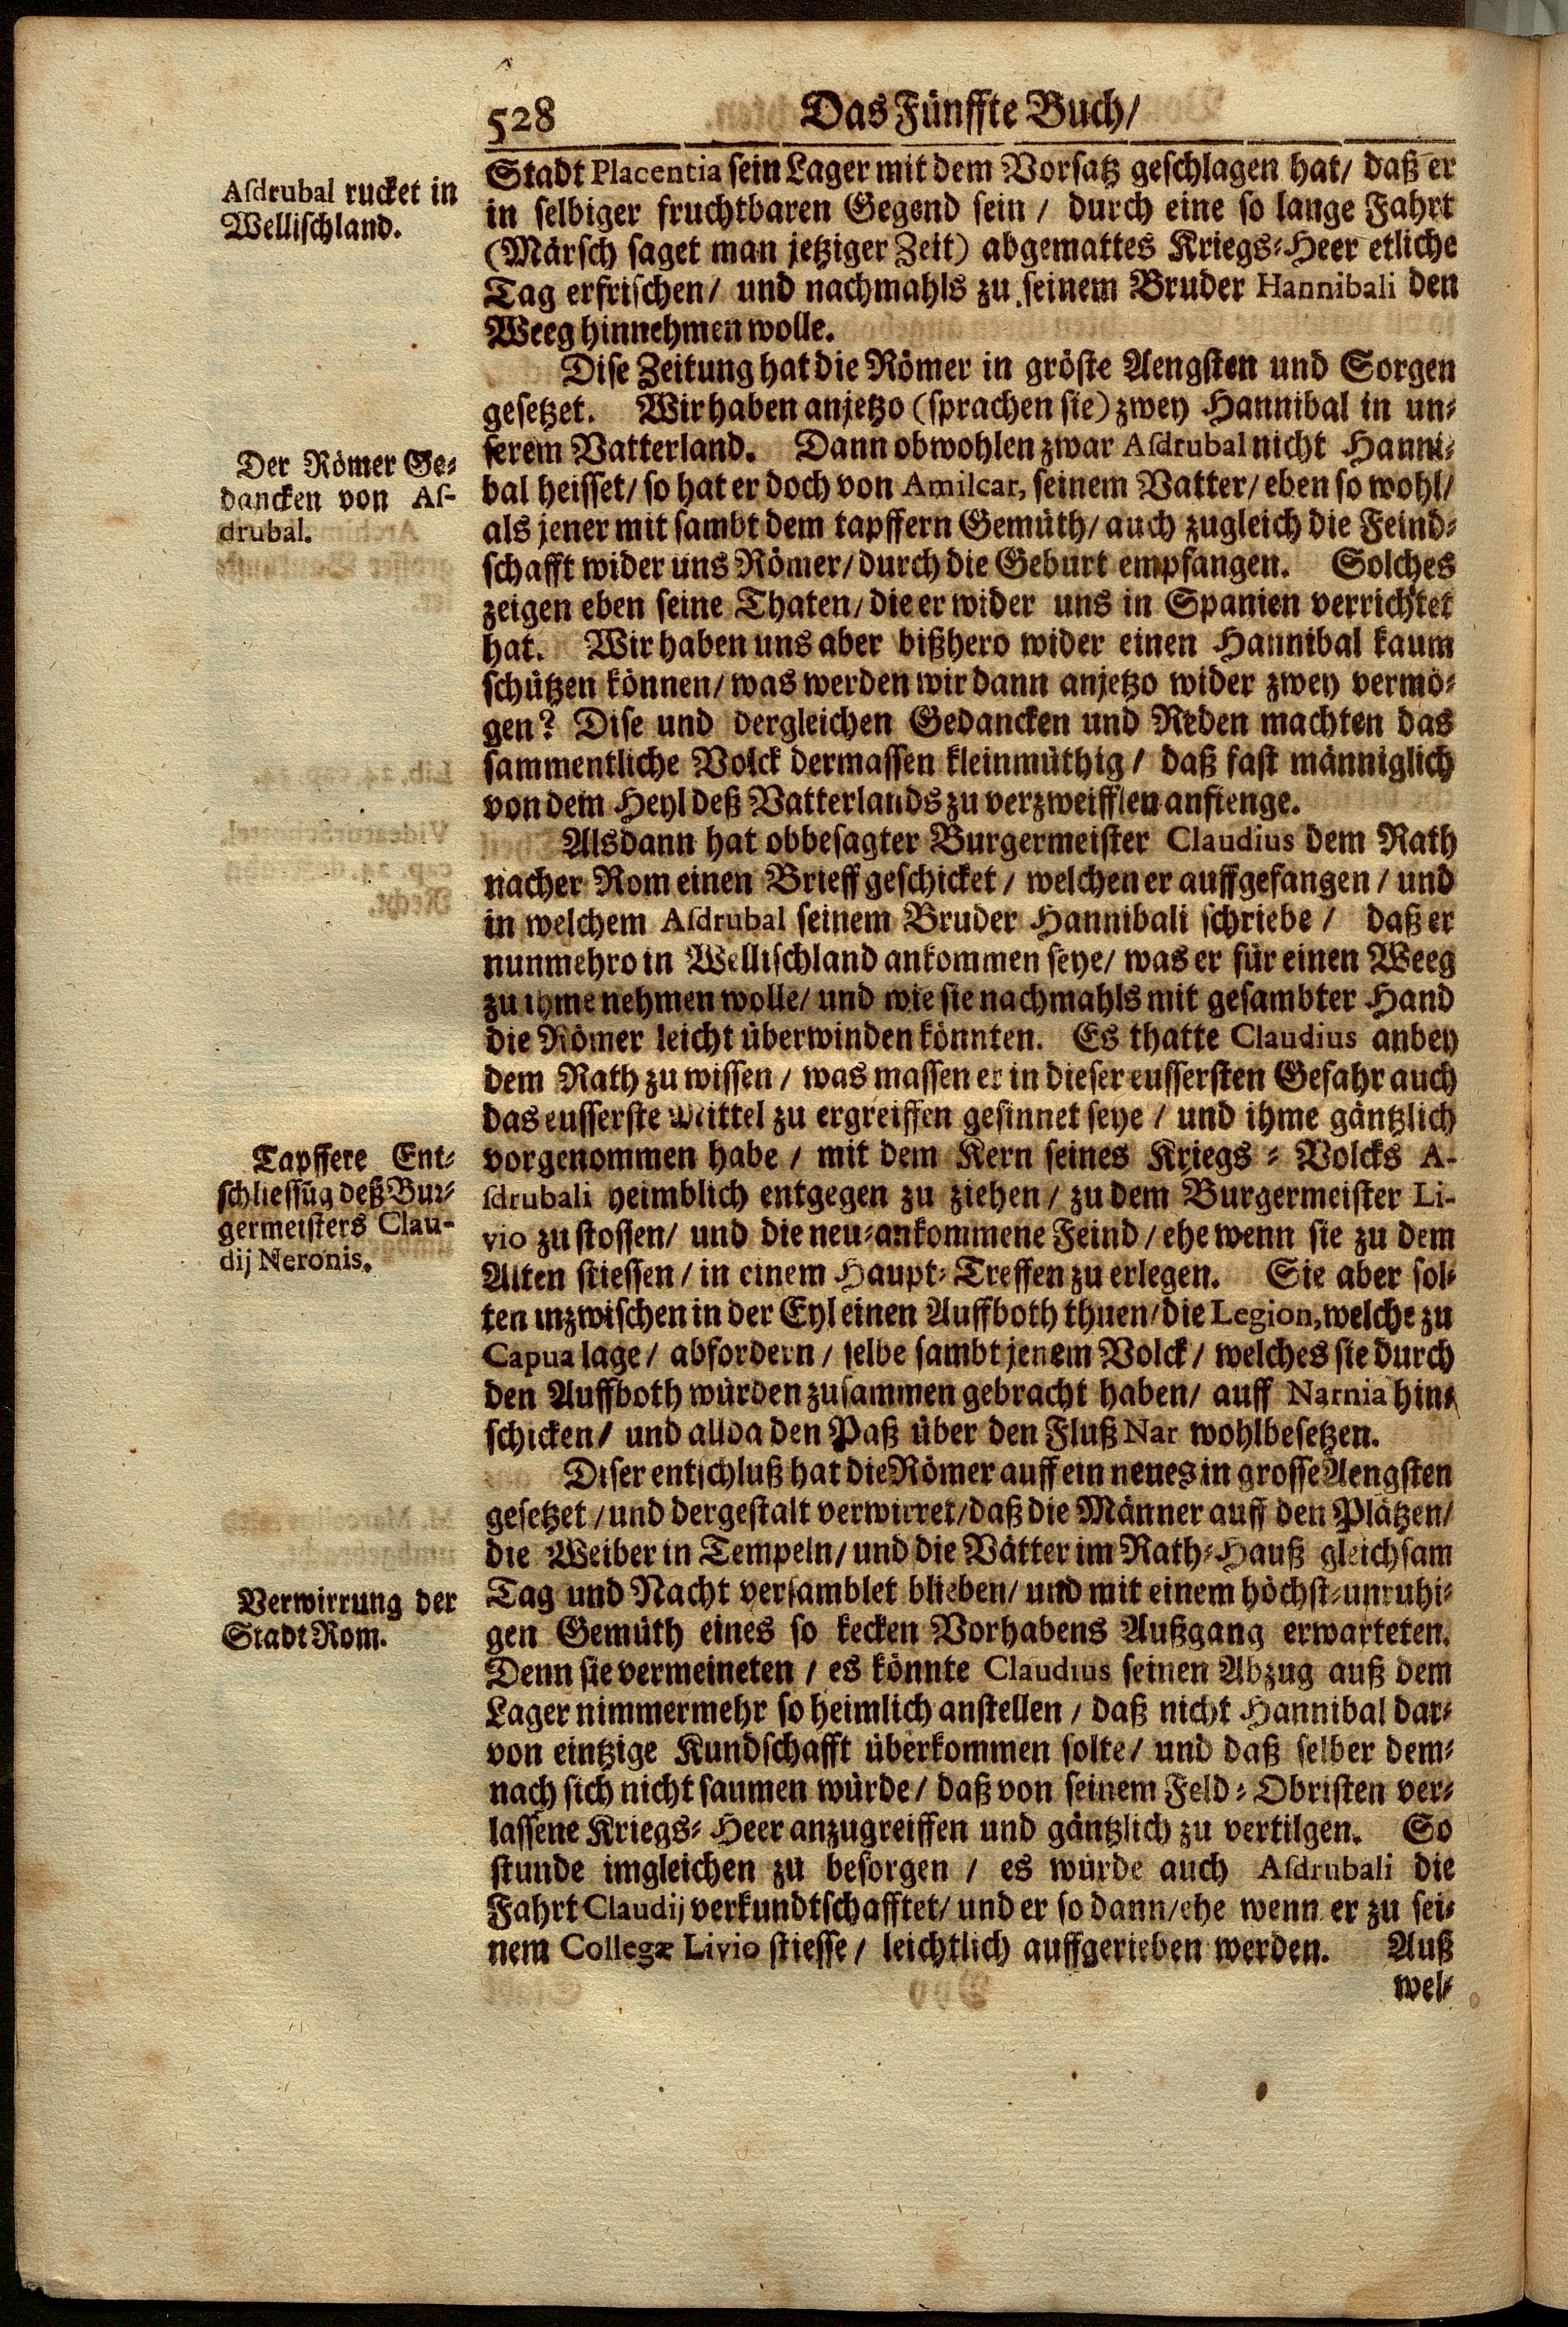 528 Das Fünffte Buch/
Asdrubal rucket in
Wellischland.
Stadt Placentia sein Lager mit dem Vorsatz geschlagen hat/ daß er
in selbiger fruchtbaren Gegend sein / durch eine so lange Fahrt
(Märsch saget man jetziger Zeit) abgemattes Kriegs-Heer etliche
Tag erfrischen/ und nachmahls zu seinem Bruder Hannibali den
Weeg hinnehmen wolle.
Dise Zeitung hat die Römer in gröste Aengsten und Sorgen
gesetzet. Wir haben anjetzo (sprachen sie) zwey Hannibal in un-
Der Römer Ge-
dancken von As-
drubal.
serem Vatterland. Dann obwohlen zwar Asdrubal nicht Hanni-
bal heisset/ so hat er doch von Amilcar, seinem Vatter/ eben so wohl/
als jener mit sambt dem tapffern Gemüth/ auch zugleich die Feind-
schafft wider uns Römer/ durch die Geburt empfangen. Solches
zeigen eben seine Thaten/ die er wider uns in Spanien verrichtet
hat. Wir haben uns aber bißhero wider einen Hannibal kaum
schützen können/ was werden wir dann anjetzo wider zwey vermö-
gen? Dise und dergleichen Gedancken und Reden machten das
sammentliche Volck dermassen kleinmüthig/ daß fast männiglich
von dem Heyl deß Vatterlands zu verzweifflen anfienge.
Alsdann hat obbesagter Burgermeister Claudius dem Rath
nacher Rom einen Brieff geschicket / welchen er auffgefangen / und
in welchem Asdrubal seinem Bruder Hannibali schriebe / daß er
nunmehro in Wellischland ankommen seye/ was er für einen Weeg
zu ihme nehmen wolle/ und wie sie nachmahls mit gesambter Hand
die Römer leicht überwinden könnten. Es thatte Claudius anbey
dem Rath zu wissen / was massen er in dieser eussersten Gefahr auch
das eusserste Mittel zu ergreiffen gesinnet seye / und ihme gäntzlich
Tapffere Ent-
schliessũg deß Bur-
germeisters Clau-
dij Neronis.
vorgenommen habe / mit dem Kern seines Kriegs-Volcks A-
sdrubali heimblich entgegen zu ziehen / zu dem Burgermeister Li-
vio zu stossen/ und die neu-ankommene Feind / ehe wenn sie zu dem
Alten stiessen / in einem Haupt-Treffen zu erlegen. Sie aber sol-
ten inzwischen in der Eyl einen Auffboth thuen/ die Legion, welche zu
Capua lage/ abfordern / selbe sambt jenem Volck / welches sie durch
den Auffboth würden zusammen gebracht haben/ auff Narnia hin-
schicken/ und allda den Paß über den Fluß Nar wohlbesetzen.
Diser entschluß hat die Römer auff ein neues in grosse Aengsten
gesetzet / und dergestalt verwirret/ daß die Männer auff den Plätzen/
die Weiber in Tempeln/ und die Vätter im Rath-Hauß gleichsam
Verwirrung der
Stadt Rom.
Tag und Nacht versamblet blieben/ und mit einem höchst-unruhi-
gen Gemüth eines so kecken Vorhabens Außgang erwarteten.
Denn sie vermeineten / es könnte Claudius seinen Abzug auß dem
Lager nimmermehr so heimlich anstellen / daß nicht Hannibal dar-
von eintzige Kundschafft überkommen solte/ und daß selber dem-
nach sich nicht saumen würde / daß von seinem Feld-Obristen ver-
lassene Kriegs-Heer anzugreiffen und gäntzlich zu vertilgen. So
stunde imgleichen zu besorgen / es würde auch Asdrubali die
Fahrt Claudij verkundtschafftet/ und er so dann/ ehe wenn er zu sei-
nem Collegæ Livio stiesse / leichtlich auffgerieben werden. Auß
wel-